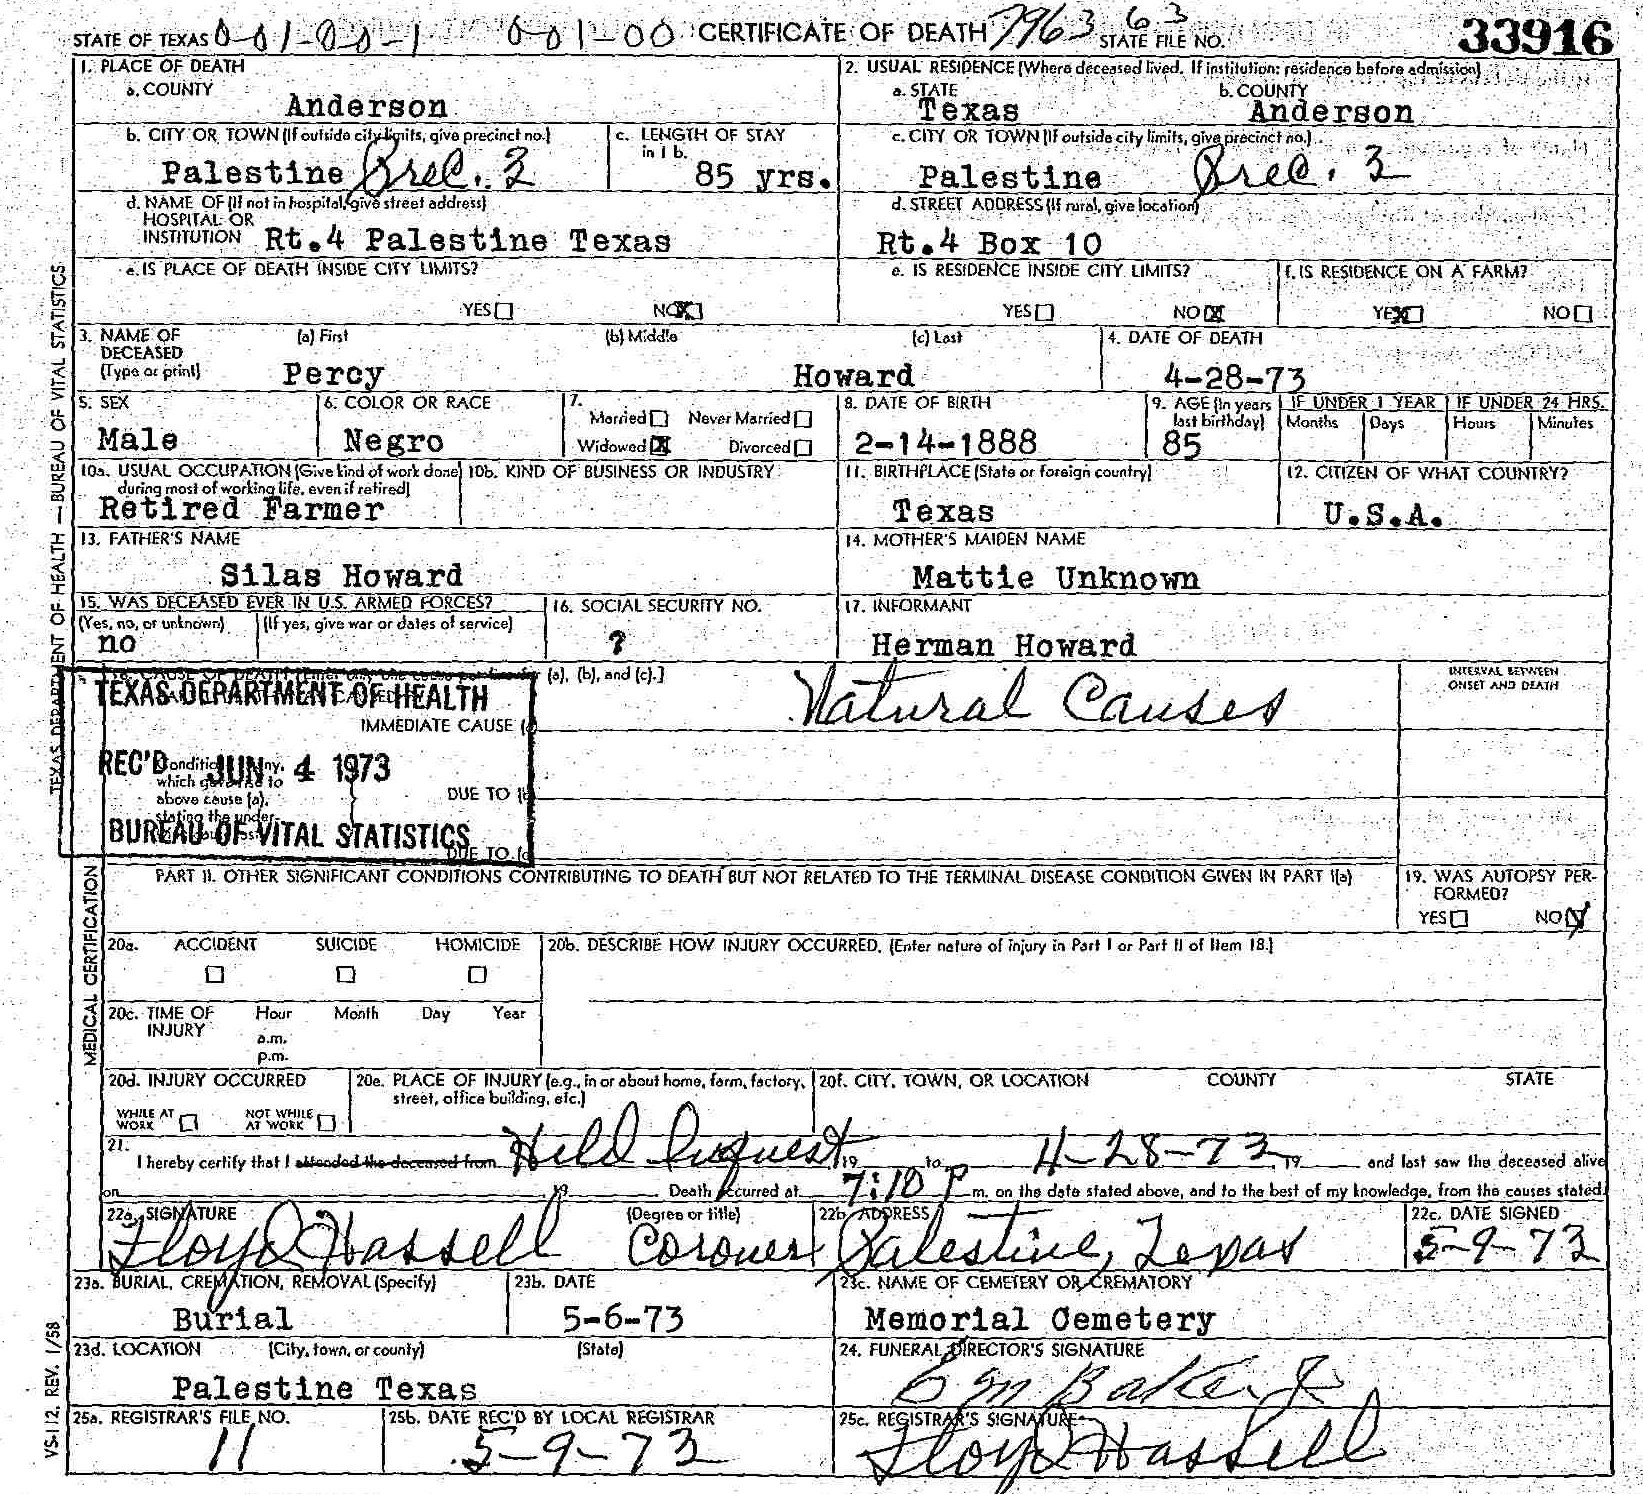 STATE OF TEXAS 001-00-1 001-00 CERTIFICATE OF DEATH 7963 63 STATE FILE NO. 33916
1. PLACE OF DEATH
a. COUNTY
Anderson
2. USUAL RESIDENCE (Where deceased lived. If institution: residence before admission)
a. STATE b. COUNTY
Texas Anderson
b. CITY OR TOWN (If outside city limits, give precinct no.)
Palestine Prec. 2
c. LENGTH OF STAY
in 1 b.
85 yrs.
c. CITY OR TOWN (If outside city limits, give precinct no.)
Palestine Prec. 2
d. NAME OF (If not in hospital, give street address)
HOSPITAL OR
INSTITUTION Rt.4 Palestine Texas
d. STREET ADDRESS (If rural, give location)
Rt.4 Box 10
e. IS PLACE OF DEATH INSIDE CITY LIMITS?
YES NO X
e. IS RESIDENCE INSIDE CITY LIMITS?
YES NO X
f. IS RESIDENCE ON A FARM?
YES X NO
3. NAME OF DECEASED (Type or print)
(a) First (b) Middle (c) Last
Percy Howard
4. DATE OF DEATH
4-28-73
5. SEX
Male
6. COLOR OR RACE
Negro
7.
Married Never Married
Widowed X Divorced
8. DATE OF BIRTH
2-14-1888
9. AGE (In years
last birthday)
85
IF UNDER 1 YEAR IF UNDER 24 HRS.
Months Days Hours Minutes
10a. USUAL OCCUPATION (Give kind of work done
during most of working life, even if retired)
Retired Farmer
10b. KIND OF BUSINESS OR INDUSTRY
11. BIRTHPLACE (State or foreign country)
Texas
12. CITIZEN OF WHAT COUNTRY?
U.S.A.
13. FATHER'S NAME
Silas Howard
14. MOTHER'S MAIDEN NAME
Mattie Unknown
15. WAS DECEASED EVER IN U.S. ARMED FORCES?
(Yes, no, or unknown) (If yes, give war or dates of service)
no
16. SOCIAL SECURITY NO.
?
17. INFORMANT
Herman Howard
(a), (b), and (c).]
IMMEDIATE CAUSE (a) Natural Causes
INTERVAL BETWEEN
ONSET AND DEATH
TEXAS DEPARTMENT OF HEALTH
REC'D JUN 4 1973
BUREAU OF VITAL STATISTICS
which gave rise to
above cause (a),
stating the under-
DUE TO (b)
DUE TO (c)
PART II. OTHER SIGNIFICANT CONDITIONS CONTRIBUTING TO DEATH BUT NOT RELATED TO THE TERMINAL DISEASE CONDITION GIVEN IN PART I(a)
19. WAS AUTOPSY PER-
FORMED?
YES NO X
20a. ACCIDENT SUICIDE HOMICIDE
20b. DESCRIBE HOW INJURY OCCURRED. (Enter nature of injury in Part I or Part II of Item 18.)
20c. TIME OF INJURY
Hour Month Day Year
a.m.
p.m.
20d. INJURY OCCURRED
WHILE AT WORK NOT WHILE AT WORK
20e. PLACE OF INJURY (e.g., in or about home, farm, factory,
street, office building, etc.)
20f. CITY, TOWN, OR LOCATION COUNTY STATE
21.
I hereby certify that I attended the deceased from Held Inquest 19 to 4-28-73, 19 and last saw the deceased alive
on 19 Death occurred at 7:10 P m. on the date stated above, and to the best of my knowledge, from the causes stated.
22a. SIGNATURE (Degree or title)
Floyd Hassell Coroner
22b. ADDRESS
Palestine, Texas
22c. DATE SIGNED
5-9-73
23a. BURIAL, CREMATION, REMOVAL (Specify)
Burial
23b. DATE
5-6-73
23c. NAME OF CEMETERY OR CREMATORY
Memorial Cemetery
23d. LOCATION (City, town, or county) (State)
Palestine Texas
24. FUNERAL DIRECTOR'S SIGNATURE
Em Baker Jr
25a. REGISTRAR'S FILE NO.
11
25b. DATE REC'D BY LOCAL REGISTRAR
5-9-73
25c. REGISTRAR'S SIGNATURE
Floyd Hassell
TEXAS DEPARTMENT OF HEALTH — BUREAU OF VITAL STATISTICS
MEDICAL CERTIFICATION
VS-112. REV. 1/58